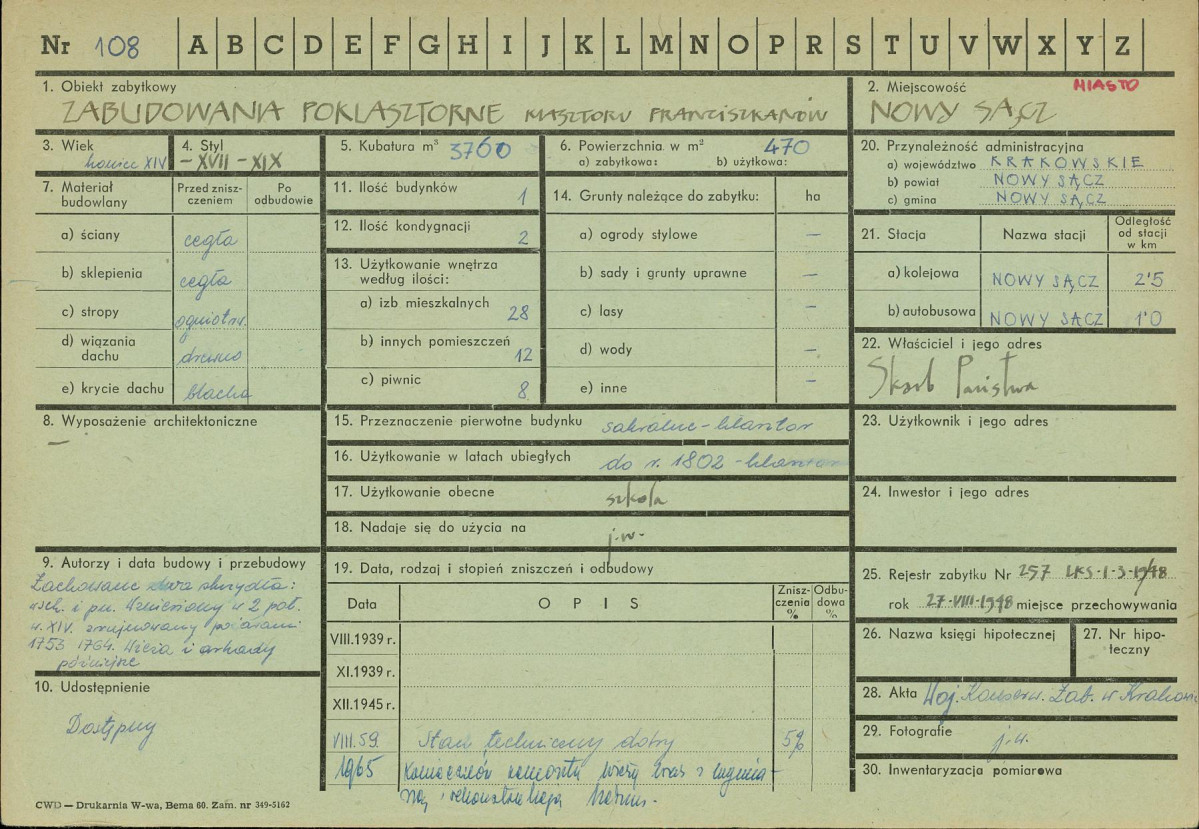 Nr 108 A B C D E F G H I J K L M N O P R S T U V W X Y Z
1. Obiekt zabytkowy
ZABUDOWANIA POKLASZTORNE KLASZTORU FRANCISZKANÓW
2. Miejscowość MIASTO
NOWY SĄCZ
3. Wiek
koniec XIV
4. Styl
– XVII – XIX
5. Kubatura m³ 3760
6. Powierzchnia w m² 470
a) zabytkowa: b) użytkowa:
20. Przynależność administracyjna
a) województwo KRAKOWSKIE
b) powiat NOWY SĄCZ
c) gmina NOWY SĄCZ
7. Materiał budowlany
Przed zniszczeniem
Po odbudowie
a) ściany cegła
b) sklepienia cegła
c) stropy ogniotrw.
d) wiązania dachu drewno
e) krycie dachu blacha
11. Ilość budynków 1
12. Ilość kondygnacji 2
13. Użytkowanie wnętrza
według ilości:
a) izb mieszkalnych 28
b) innych pomieszczeń 12
c) piwnic 8
14. Grunty należące do zabytku: ha
a) ogrody stylowe –
b) sady i grunty uprawne –
c) lasy –
d) wody –
e) inne –
21. Stacja Nazwa stacji Odległość od stacji w km
a) kolejowa NOWY SĄCZ 2'5
b) autobusowa NOWY SĄCZ 1'0
22. Właściciel i jego adres
Skarb Państwa
8. Wyposażenie architektoniczne
–
15. Przeznaczenie pierwotne budynku sakralne - klasztor
16. Użytkowanie w latach ubiegłych do r. 1802 - klasztor
17. Użytkowanie obecne szkoła
18. Nadaje się do użycia na j.w.
23. Użytkownik i jego adres
24. Inwestor i jego adres
9. Autorzy i data budowy i przebudowy
Zachowane dwa skrzydła:
wsch. i pn. Wzniesiony w 2 poł.
w. XIV. zrujnowany pożarami
1753 1764. Wieża i arkady
późniejsze
10. Udostępnienie
Dostępny
19. Data, rodzaj i stopień zniszczeń i odbudowy
Data OPIS Zniszczenia % Odbudowa %
VIII.1939 r.
XI.1939 r.
XII.1945 r.
VIII.59. Stan techniczny dobry 5%
1965 Konieczność remontu wieży wraz z
rekonstrukcją
25. Rejestr zabytku Nr 257 LKS-I-3-1/48
rok 27-VIII-1948 miejsce przechowywania
26. Nazwa księgi hipotecznej
27. Nr hipoteczny
28. Akta Woj. Konserw. Zab. w Krakowie
29. Fotografie j.w.
30. Inwentaryzacja pomiarowa
CWD — Drukarnia W-wa, Bema 60. Zam. nr 349-5162